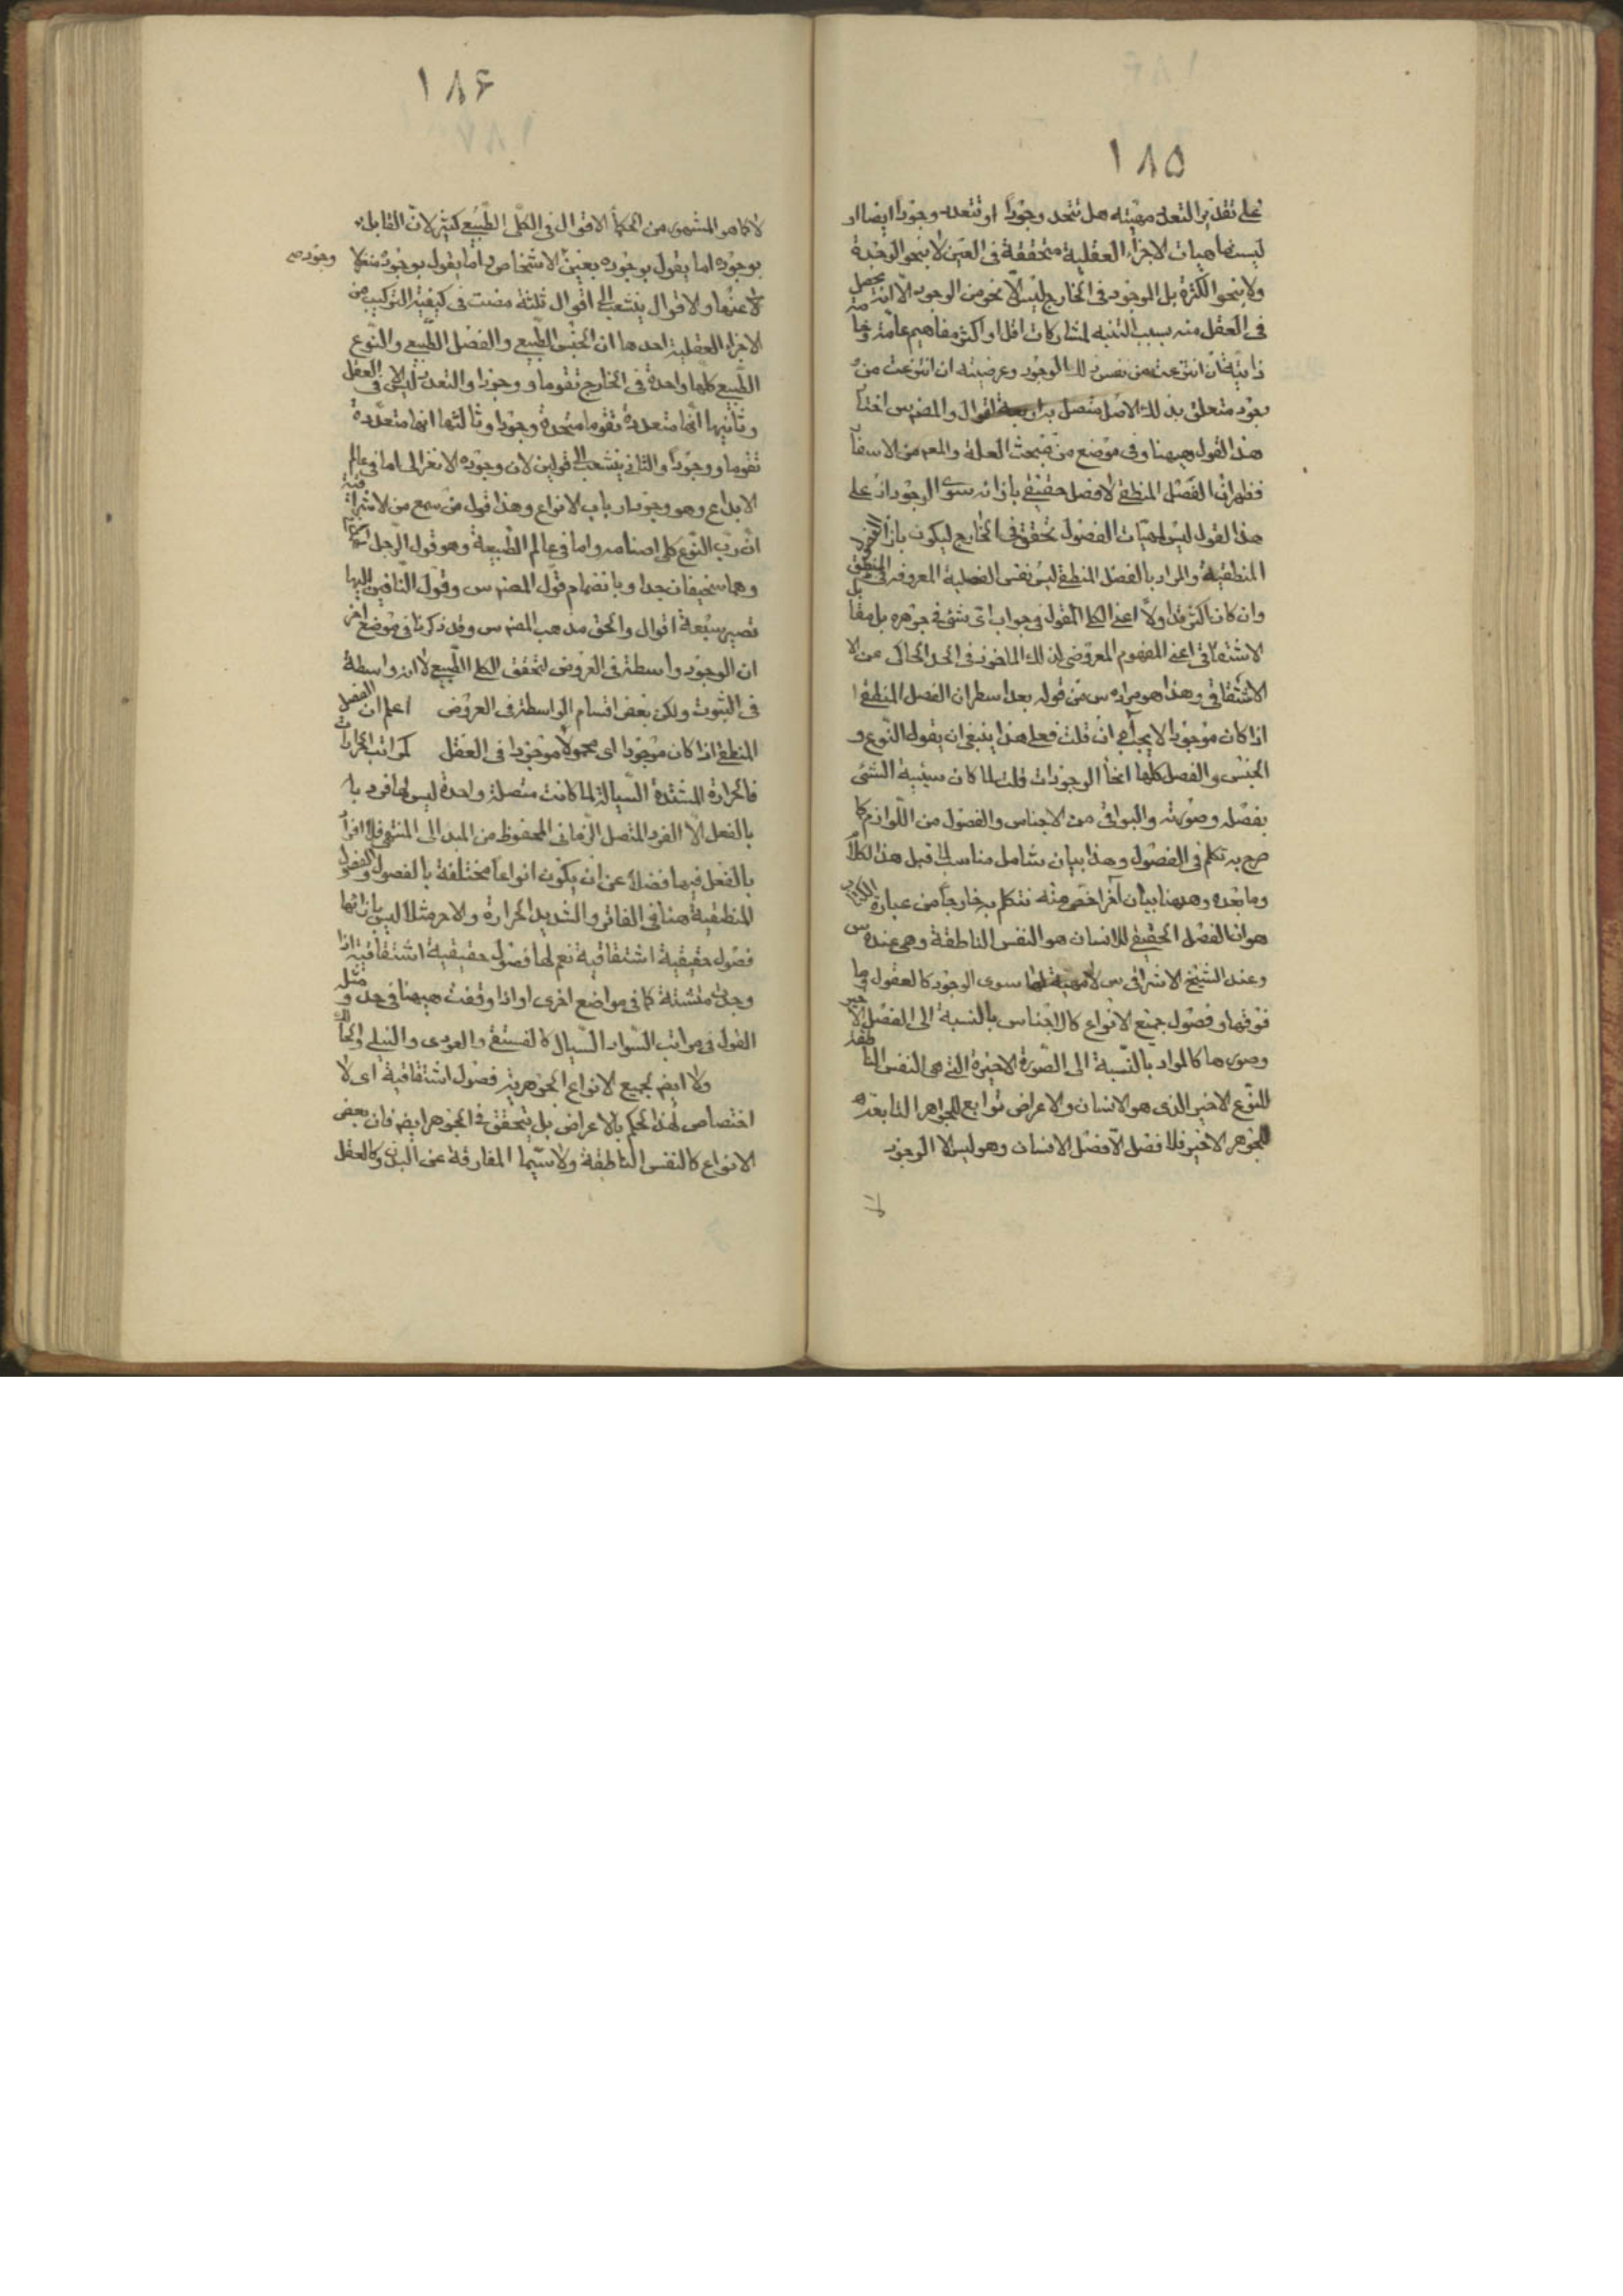 ١٨٥
على تقدير التعدد مهيته هل تتحد وجودا او تتعدد وجودا ايضا او
ليست ماهيات الاجزاء العقلية متحققة فى العين لا بنحو الوحدة
ولا بنحو الكثرة بل الموجود فى الخارج ليس الا نحو من الوجود الا انه يحصل
فى العقل منه بسبب التنبه لمشاركات اقل او اكثر مفاهيم عامة و
ذاتية ان انتزعت من نفس ذلك الوجود وعرضية ان انتزعت من
وجود متعلق بذلك الاصل متصل به اربعة اقوال والمصنف س اختار
هذا القول ههنا وفى موضع من مبحث العلة والمع من الاسفار
فظهر ان الفصل المنطقى لا فصل حقيقى بازائه سوى الوجود اذ على
هذا القول ليس لمهيات الفصول تحقق فى الخارج ليكون بازاء الفصول
المنطقية والمراد بالفصل المنطقى ليس نفس الفصلية المعروفة فى المنطق
وان كان اكثر تداولا اعنى الكلى المقول فى جواب اى شئ فى جوهره بل مقابل
الاشتقاقى اعنى المفهوم المعروض لذلك الماخوذ فى الحد الحاكى عن الا
الاشتقاقى وهذا هو مراده س من قوله بعد اسطر ان الفصل المنطقى
اذا كان موجودا لا يجب اه ان قلت فعلى هذا ينبغى ان يقول النوع و
الجنس والفصل كلها انحاء الوجودات قلت لما كان شيئية الشئ
بفصله وصورته والبواقى من الاجناس والفصول من اللوازم كما
صرح به تكلم فى الفصول وهذا بيان شامل مناسب لما قبل هذا الكلام
وما بعده وههنا بيان آخر اخص منه نتكلم به خارجا من عبارة الكتاب
هو ان الفصل الحقيقى للانسان هو النفس الناطقة وهى عنده س
وعند الشيخ الاشراقى س لا مهية لها سوى الوجود كالعقول وما
فوقها وفصول جميع الانواع كالاجناس بالنسبة الى الفصل الاخير
وصورها كالمواد بالنسبة الى الصورة الاخيرة التى هى النفس الناطقة
للنوع الاخير الذى هو الانسان والاعراض توابع للجواهر التابعة
للجوهر الاخير فلا فصل الا فصل الانسان وهو ليس الا الوجود
لا
١٨۶
لا كما هو المشهور من الحكماء الاقوال فى الكلى الطبيعى كثيرة لان القايل
بوجوده اما يقول بوجوده بعين الاشخاص واما يقول بوجوده منعزلا وجوده
لا عنها والاقوال ينشعب الى اقوال ثلثة مضت فى كيفية التركيب من
الاجزاء العقلية احدها ان الجنس الطبيعى والفصل الطبيعى والنوع
الطبيعى كلها واحدة فى الخارج تقوما ووجودا والتعدد ليس الا فى العقل
وثانيها انها متعددة تقوما متحدة وجودا وثالثها انها متعددة
تقوما ووجودا والثانى ينشعب الى قولين لان وجوده الانعزالى اما فى عالم
الابداع وهو وجود ارباب الانواع وهذا قول من سمع من الاشراقية
ان رب النوع كلى اصنامه واما فى عالم الطبيعة وهو قول الرجل
وهما سخيفان جدا وبانضمام قول المصنف س وقول النافين اليها
تصير سبعة اقوال والحق مذهب المصنف س وقد ذكرنا فى موضع اخر
ان الوجود واسطة فى العروض لتحقق الكلى الطبيعى لا انه واسطة
فى الثبوت ولكن بعض اقسام الواسطة فى العروض اعلم ان الفصل
المنطقى اذا كان موجودا اى محمولا موجودا فى العقل كمراتب الحرارات
فالحرارة المشتدة السيالة لما كانت متصلة واحدة ليس لها فرد با
بالفعل الا الفرد المتصل الزمانى المحفوظ من المبدا الى المنتهى فلا افراد
بالفعل فيها فضلا عن ان يكون انواعا مختلفة بالفصول والفصول
المنطقية هنا فى الفاتر والشديد الحرارة والاحر مثلا ليس بازائها
فصول حقيقية اشتقاقية نعم لها فصول حقيقية اشتقاقية اذا
وجدت متشتتة كما فى مواضع اخرى او اذا وقفت ههنا فى حد و مثله
القول فى مراتب السواد السيال كالفستقى والعودى والنيلى والحالك
ولا ايضا لجميع الانواع الجوهرية فصول اشتقاقية اى لا
اختصاص لهذا الحكم بالاعراض بل يتحقق فى الجوهر ايضا فان بعض
الانواع كالنفس الناطقة ولا سيما المفارقة عن البدن وكالعقل